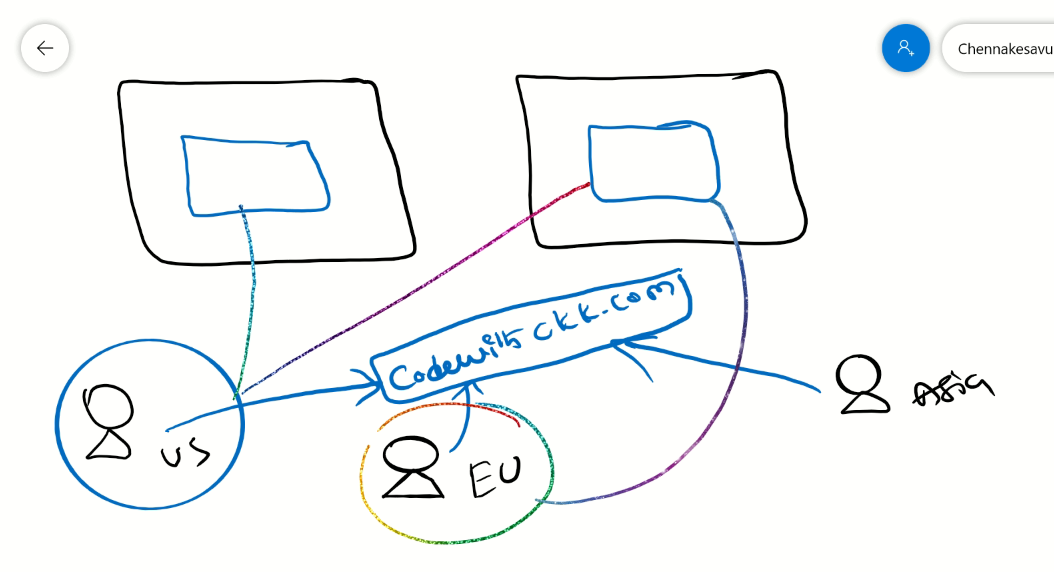 Chennakesavu
Codewith ckk.com
US
EU
Asia